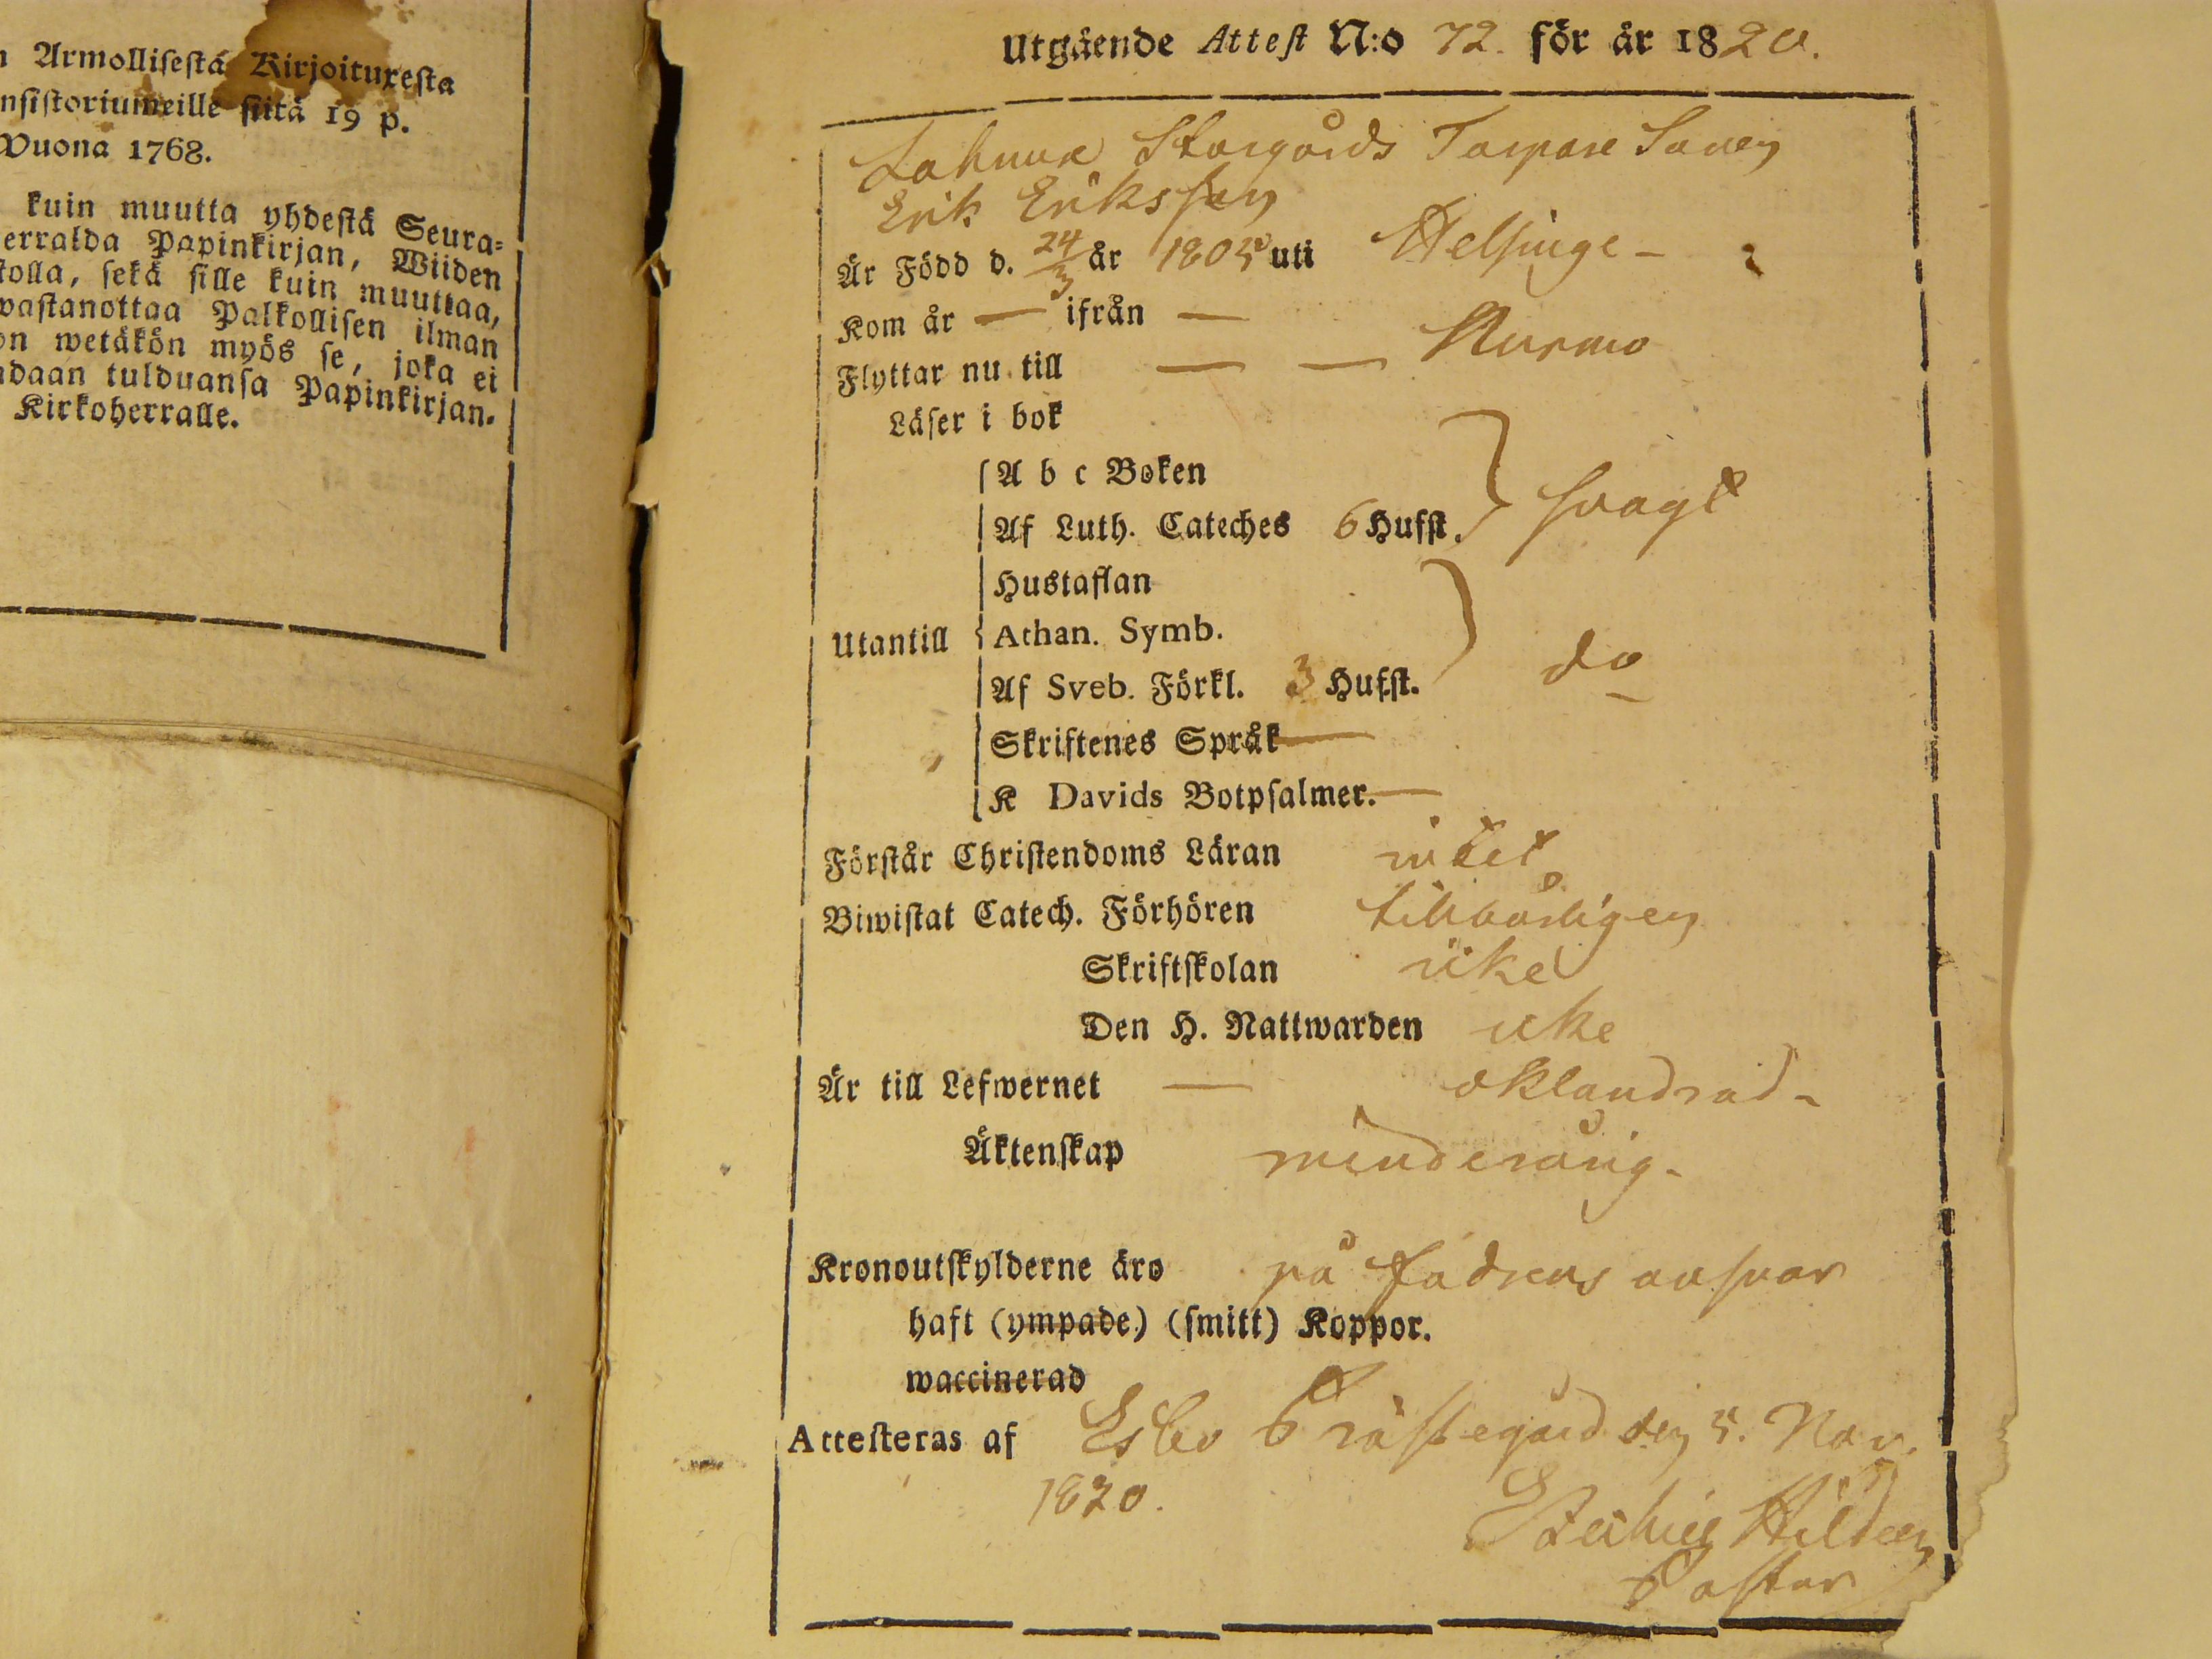 Armollisestä Kirjoituxesta
nsistoriumeille siitä 19 p.
Wuona 1768.
kuin muutta yhdestä Seura-
erralda Papinkirjan, Wiiden
tolla, sekä sille kuin muuttaa,
wastanottaa Palkollisen ilman
on wetäkön myös se, joka ei
daan tulduansa Papinkirjan.
Kirkoherralle.
Utgående Attest N:o 72. för år 1820.
Storgårds Torpare Sonen
Erik Eriksson
Är Född d. 24/3 år 1805 uti Helsinge -
Kom år — ifrån —
Flyttar nu till — — Nurmo
Läser i bok
A b c Boken
Af Luth. Cateches 6 Hufst. } svagt
Hustaflan
Utantill { Athan. Symb.
Af Sveb. Förkl. 3 Hufst. } do
Skriftenes Språk —
K Davids Botpsalmer. —
Förstår Christendoms Läran intet
Biwistat Catech. Förhören tillbörligen
Skriftskolan icke
Den H. Nattwarden icke
Är till Lefwernet — oklandrad -
Äktenskap minderårig -
Kronoutskylderne äro på fadrens ansvar
haft (ympade) (smitt) Koppor.
waccinerad
Attesteras af Esbo Prästegård den 5. Nov.
1820.
Hilden
Pastor